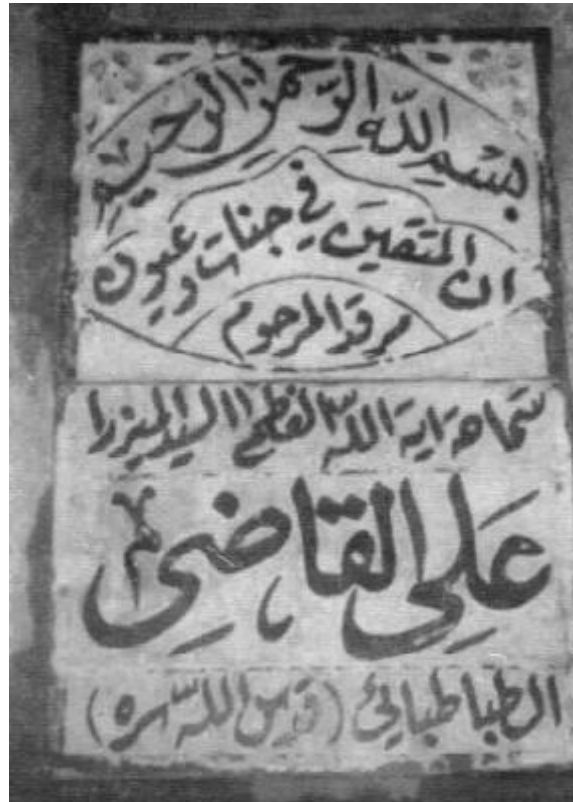 بِسْمِ اللّهِ الرَّحْمنِ الرَّحيمِ
ان المتقينَ في جنات وعيون
مرقد المرحوم
سماحة اية اللّه العظمى السيد الميرزا
عَلي القاضي
الطباطبائي (قدس اللّه سره)